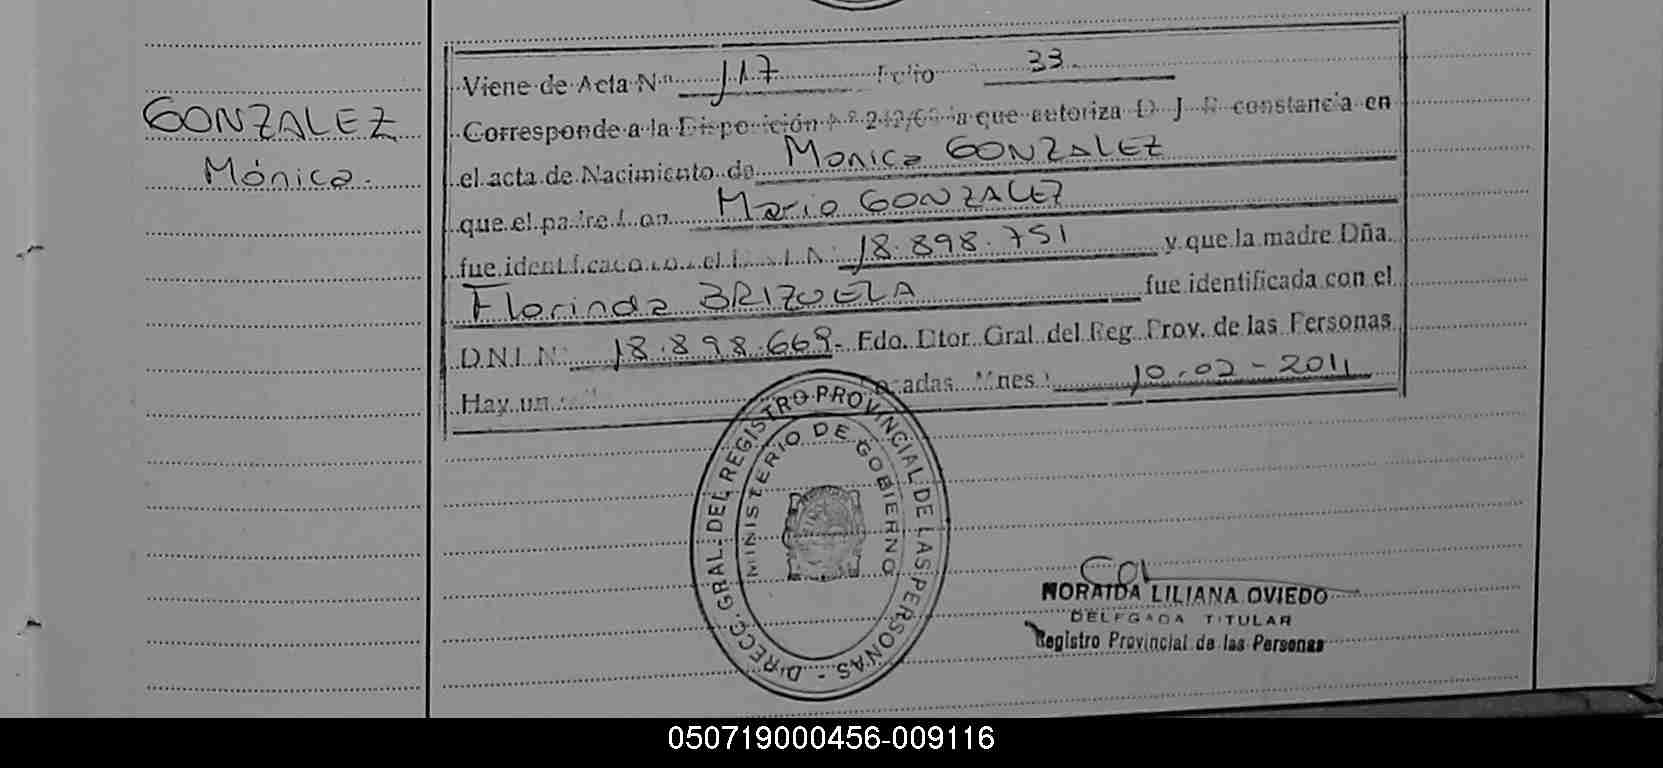 Viene de Acta Nº 117 Folio 33.
GONZALEZ
Mónica.
Corresponde a la Disposición Nº 242/66 la que autoriza D. J. R constancia en
el acta de Nacimiento de Monica GONZALEZ
que el padre Don Mario GONZALEZ
fue identificado con el D.N.I. N: 18.898.751 y que la madre Dña.
Florinda BRIZUELA fue identificada con el
D.N.I. N: 18.898.669. Fdo. Dtor. Gral. del Reg. Prov. de las Personas
Hay un 10-02-2011
DIRECC. GRAL. DEL REGISTRO PROVINCIAL DE LAS PERSONAS -
MINISTERIO DE GOBIERNO
NORAIDA LILIANA OVIEDO
DELEGADA TITULAR
Registro Provincial de las Personas
050719000456-009116